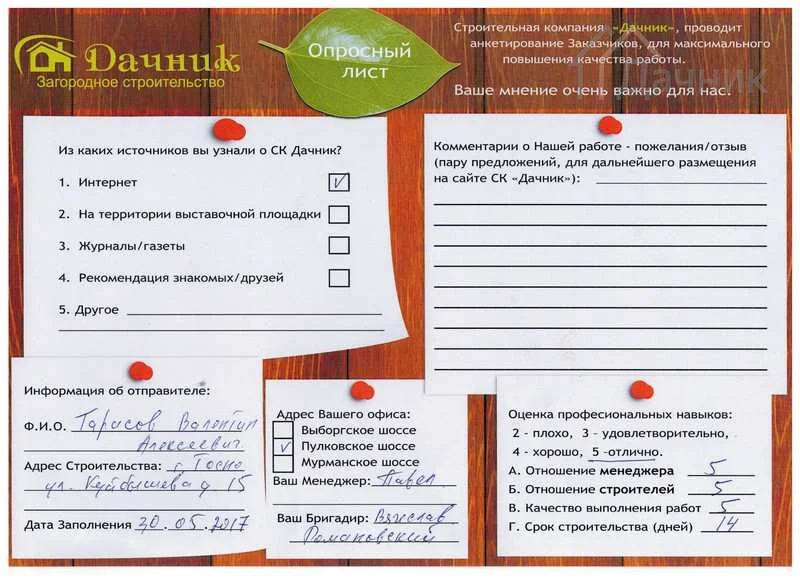 Дачник
Загородное строительство
Опросный
лист
Строительная компания «Дачник», проводит
анкетирование Заказчиков, для максимального
повышения качества работы.
Ваше мнение очень важно для нас.
Дачник
Из каких источников вы узнали о СК Дачник?
1. Интернет V
2. На территории выставочной площадки
3. Журналы/газеты
4. Рекомендация знакомых/друзей
5. Другое
Комментарии о Нашей работе - пожелания/отзыв
(пару предложений, для дальнейшего размещения
на сайте СК «Дачник»):
Информация об отправителе:
Ф.И.О. Тарасов Валентин
Алексеевич.
Адрес Строительства: г. Тосно
ул. Куйбышева д 15
Дата Заполнения 30.05.2017
Адрес Вашего офиса:
Выборгское шоссе
V Пулковское шоссе
Мурманское шоссе
Ваш Менеджер: Павел
Ваш Бригадир: Вячеслав
Романовский
Оценка професиональных навыков:
2 - плохо, 3 - удовлетворительно,
4 - хорошо, 5 -отлично.
А. Отношение менеджера 5
Б. Отношение строителей 5
В. Качество выполнения работ 5
Г. Срок строительства (дней) 14